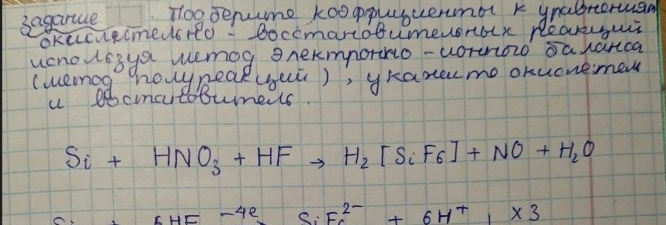 Задание . Подберите коэффициенты к уравнениям
окислительно - восстановительных реакций
используя метод электронно - ионного баланса
(метод полуреакций), укажите окислетем
и востановитель.
Si + HNO₃ + HF → H₂[SiF₆] + NO + H₂O
Si + 6HF -4e SiF₆²⁻ + 6H⁺ | ×3